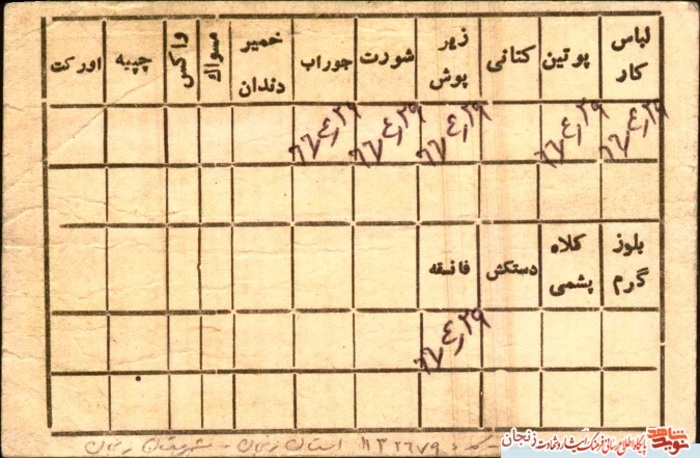 لباس کار پوتین کتانی زیر پوش شورت جوراب خمیر دندان مسواك واکس چپیه اورکت
بلوز گرم کلاه پشمی دستکش فانسقه
۱۱۳۲۶۷۹ استان زنجان - شهرستان زنجان
نوید شاهد
پایگاه اطلاع رسانی فرهنگ ایثار و شهادت زنجان